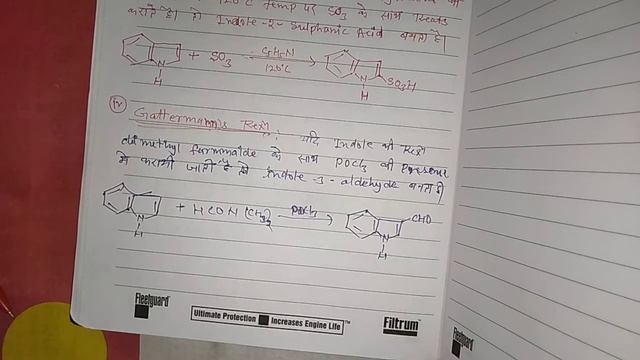 120°C temp पर SO3 के साथ treats
कराते है। तो Indole-2-Sulphonic Acid बनता है।
N
H
+ SO3
C5H5N
120°C
N
H
SO3H
(iv) Gattermann's Rexn : यदि Indole की Rexn
dimethyl formamalde के साथ POCl3 की Presence
में करायी जाती है तो Indole-3-aldehyde बनता है।
N
H
+ HCON(CH3)2
POCl3
CHO
N
H
Fleetguard
Ultimate Protection Increases Engine Life
Filtrum
Fleetguard